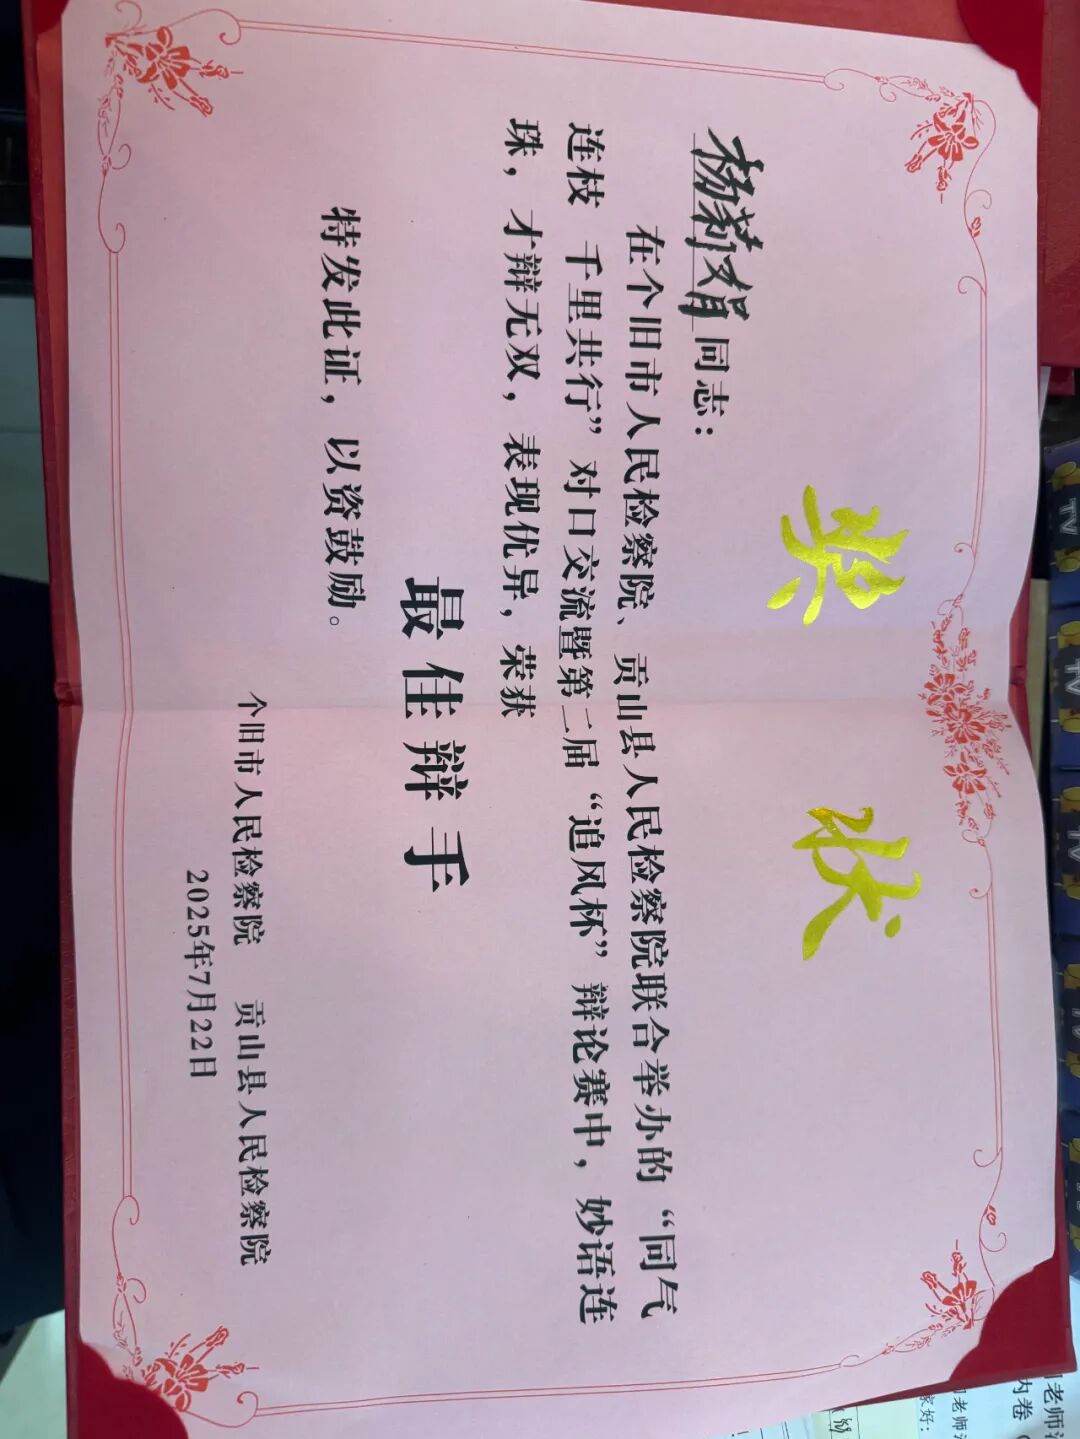 奖状
杨莉娟同志：
在个旧市人民检察院、贡山县人民检察院联合举办的“同气
连枝 千里共行”对口交流暨第二届“追风杯”辩论赛中，妙语连
珠，才辩无双，表现优异，荣获
最佳辩手
特发此证，以资鼓励。
个旧市人民检察院 贡山县人民检察院
2025年7月22日
TV
TV
TV
TV
老师
内卷
老师
家好：